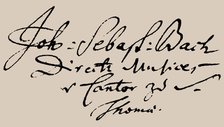 Joh: Sebast: Bach
Direct: Musices
& Cantor zu S.
Thomæ.